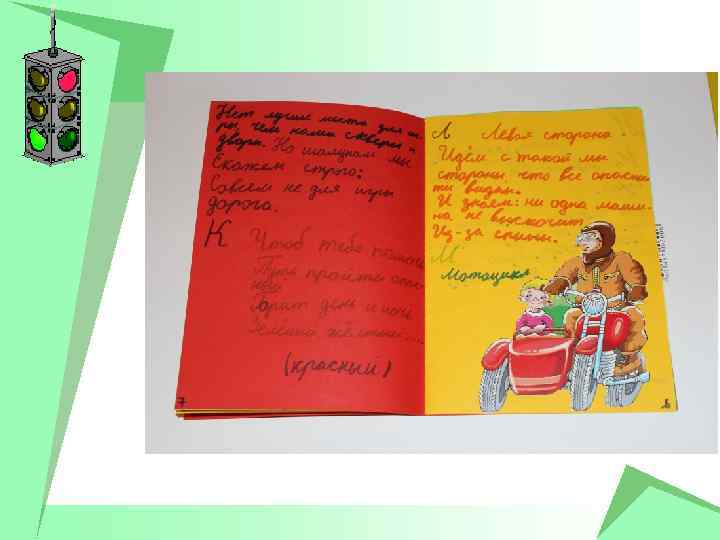 Нет лучше места для иг-
ры, чем наши скверы и
дворы. Но шалунам мы
Скажем строго:
Совсем не для игры
дорога.
К
Чтоб тебе помочь
Путь пройти опас
ный
Горит день и ночь
Зелёный, жёлтый...
(красный)
7
Л Левая сторона
Идём с такой мы
стороны, что все опасно-
ти видим.
И знаем: ни одна маши-
на не выскочит
Из-за спины.
М
Мотоцикл